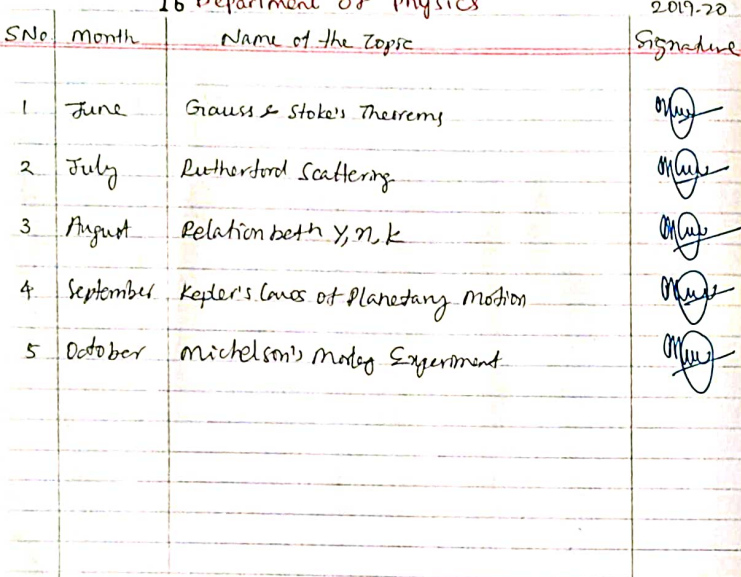 16 Department of Physics 2019-20
SNo Month Name of the Topic Signature
1 June Gauss & Stoke's Theorems
2 July Rutherford Scattering
3 August Relation betn Y, n, k
4 September Kepler's Laws of Planetary Motion
5 October Michelson's Morley Experiment